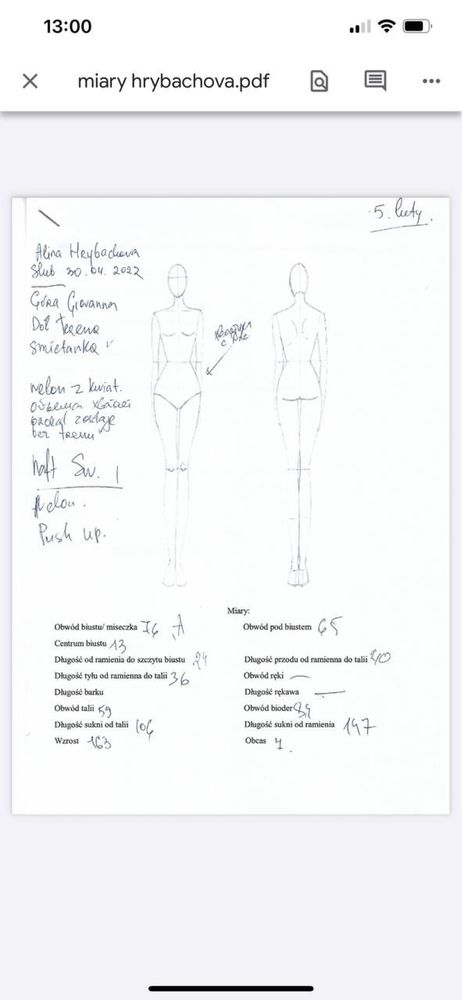 13:00
miary hrybachova.pdf
5. luty.
Alina Hrybachova
Ślub 30.04.2022
Góra Giovanna
Dół Teena
śmietanka
welon z kwiat.
zostaje
haft Św. 1
Welon.
Push up.
Miary:
Obwód biustu/ miseczka 76 A
Obwód pod biustem 65
Centrum biustu 13
Długość od ramienia do szczytu biustu 24
Długość przodu od ramienna do talii 40
Długość tyłu od ramienna do talii 36
Obwód ręki —
Długość barku
Długość rękawa —
Obwód talii 59
Obwód bioder 89
Długość sukni od talii 106
Długość sukni od ramienia 147
Wzrost 163
Obcas 7